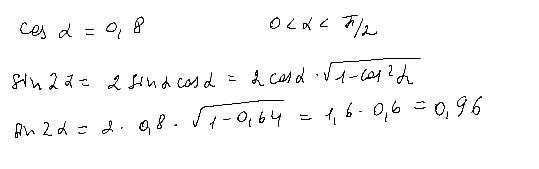 cos α = 0,8 0 < α < π/2
sin 2α = 2 sin α cos α = 2 cos α · √1-cos²α
sin 2α = 2 · 0,8 · √1-0,64 = 1,6 · 0,6 = 0,96